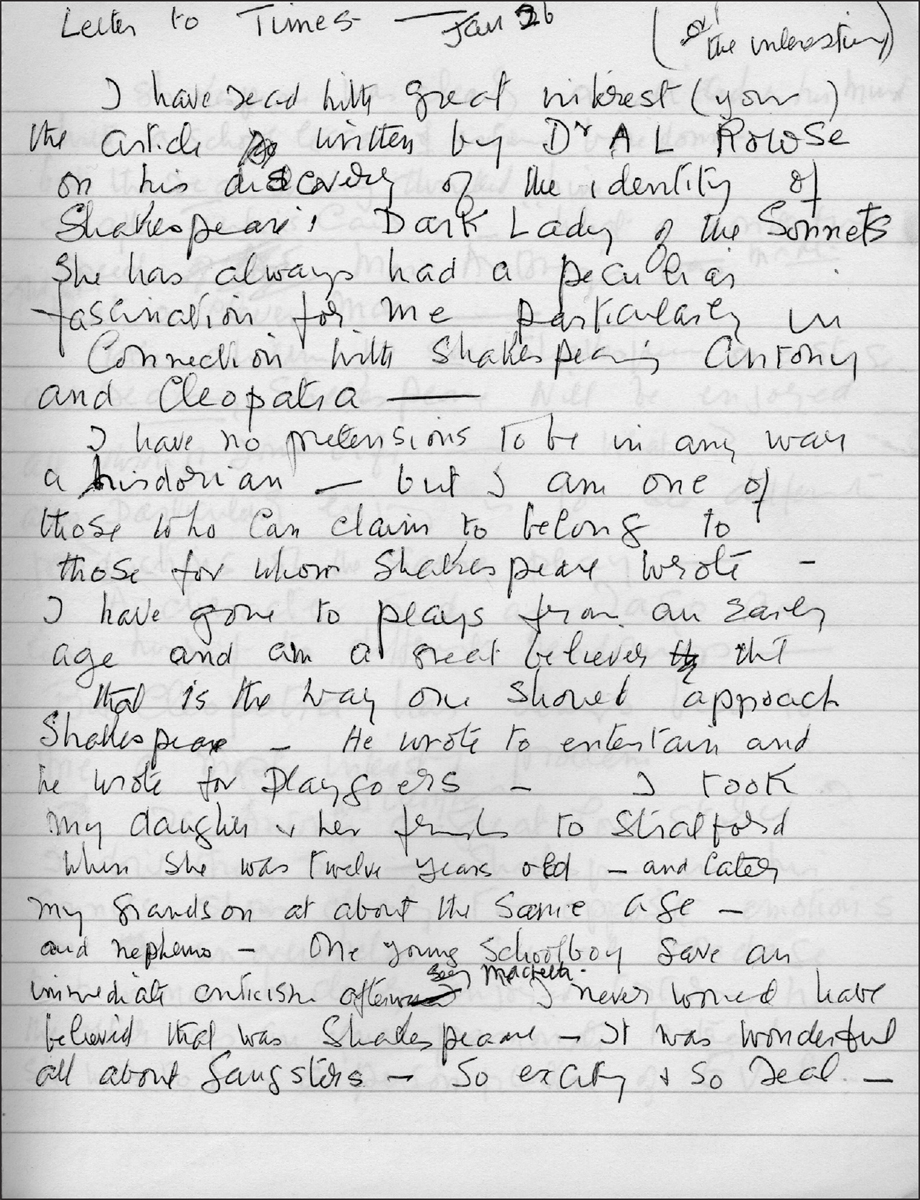 Letter to Times — Jan 26
(or the interesting)
I have read with great interest (your)
the article written by Dr A L Rowse
on his discovery of the identity of
Shakespeare's Dark Lady of the Sonnets
She has always had a peculiar
fascination for me particularly in
Connection with Shakespeare's Antony
and Cleopatra —
I have no pretensions to be in any way
a historian — but I am one of
those who can claim to belong to
those for whom Shakespeare wrote -
I have gone to plays from an early
age and am a great believer tht
that is the way one should approach
Shakespeare - He wrote to entertain and
he wrote for Playgoers - I took
my daughter & her friends to Stratford
when she was twelve years old - and later
my grandson at about the same age -
and nephews - One young schoolboy gave an
seeing Macbeth -
immediate criticism after I never would have
believed that was Shakespeare - It was wonderful
all about Gangsters - So exciting & so real -